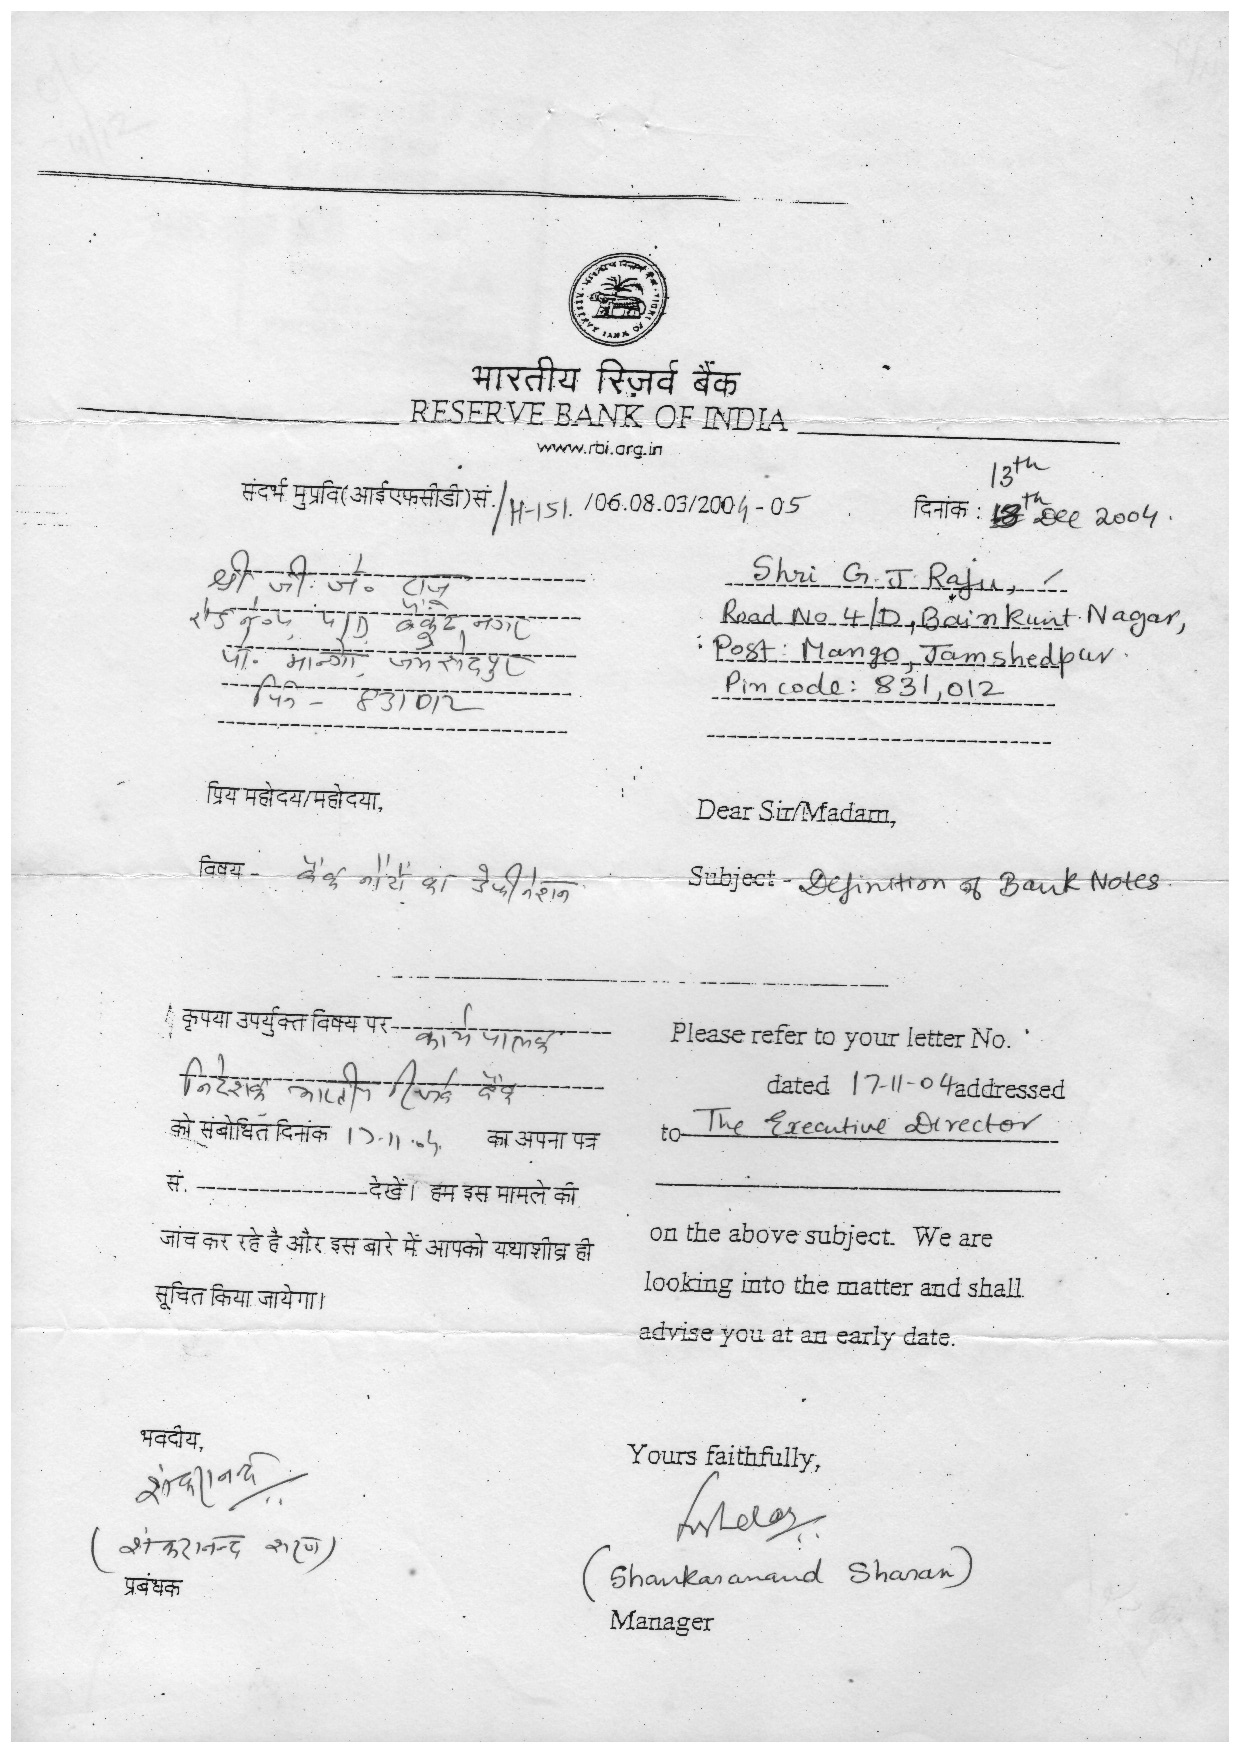 भारतीय रिज़र्व बैंक
RESERVE BANK OF INDIA
www.rbi.org.in
संदर्भ मुप्रवि(आईएफसीडी)सं./H-151. /06.08.03/2004-05
13th
दिनांक : th Dec 2004.
श्री जी. जे. राजू
रोड नं. 4/D बैंकुंट नगर
पो. मान्गो, जमशेदपुर
पिन - 831012
Shri G. J Raju,
Road No. 4/D, Bainkunt Nagar,
Post: Mango, Jamshedpur.
Pin code: 831,012
प्रिय महोदय/महोदया,
विषय - बैंक नोटों का डेफीनेशन
कृपया उपर्युक्त विषय पर कार्यपालक
निदेशक भारतीय रिजर्व बैंक
को संबोधित दिनांक 17-11-04 का अपना पत्र
सं. ----------------देखें। हम इस मामले की
जांच कर रहे है और इस बारे में आपको यथाशीघ्र ही
सूचित किया जायेगा।
भवदीय,
शंकरानन्द
(शंकरानन्द शरण)
प्रबंधक
Dear Sir/Madam,
Subject - Definition of Bank Notes.
Please refer to your letter No.
dated 17-11-04 addressed
to The Executive Director
on the above subject. We are
looking into the matter and shall
advise you at an early date.
Yours faithfully,
(Shankaranand Sharan)
Manager